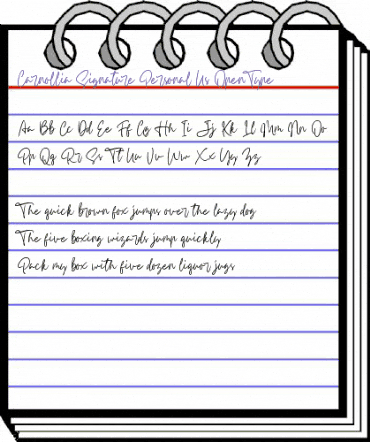 Carnollia Signature Personal Us OpenType
Aa Bb Cc Dd Ee Ff Gg Hh Ii Jj Kk Ll Mm Nn Oo
Pp Qq Rr Ss Tt Uu Vv Ww Xx Yy Zz
The quick brown fox jumps over the lazy dog
The five boxing wizards jump quickly
Pack my box with five dozen liquor jugs